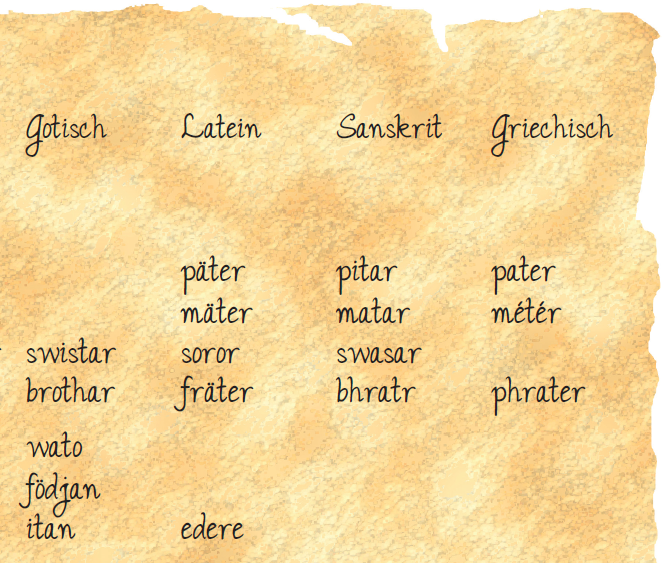 Gotisch Latein Sanskrit Griechisch
päter pitar pater
mäter matar métér
swistar soror swasar
brothar fräter bhratr phrater
wato
födjan
itan edere